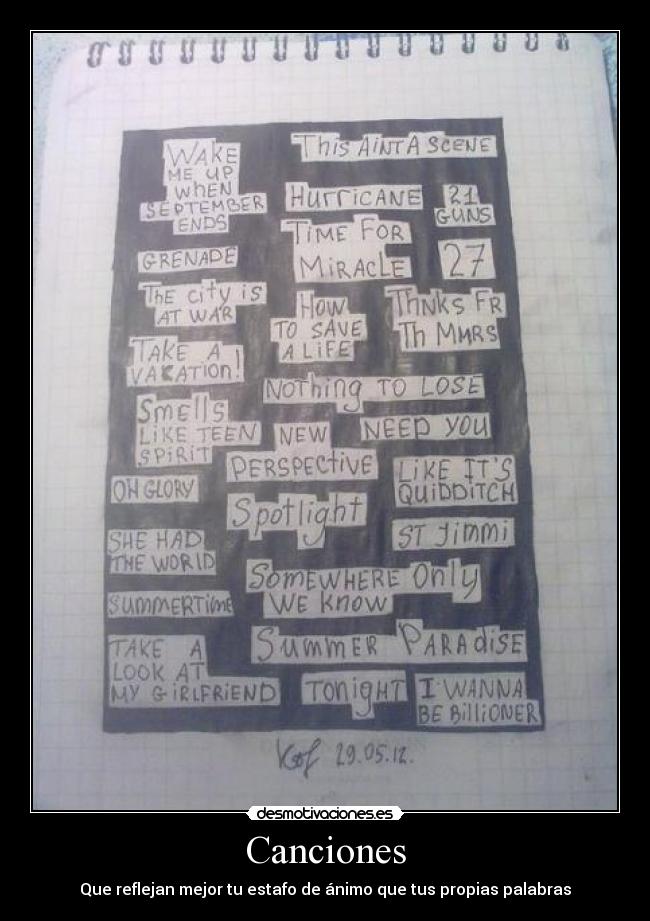 WAKE
ME UP
WHEN
SEPTEMBER
ENDS
This AiNT A SCENE
HURRICANE
21
GUNS
TiME FOR
MiRACLE
27
GRENADE
ThE city is
AT WAR
HOW
TO SAVE
A LiFE
ThNKS FR
Th MMRS
TAKE A
VAKATiOn!
NOThing TO LOSE
SMElls
LiKE TEEN
SPiRiT
NEW
PERSPECTiVE
NEED YOU
OH GLORY
LiKE IT'S
QUiDDiTCH
Spotlight
ST Jimmi
SHE HAD
THE WORlD
SOMEWHERE Only
WE KNOW
SUMMERTiME
SUMMER PARAdiSE
TAKE A
LOOK AT
MY GiRLFRiEND
TONiGHT
I WANNA
BE BilliONER
29.05.12.
desmotivaciones.es
Canciones
Que reflejan mejor tu estafo de ánimo que tus propias palabras